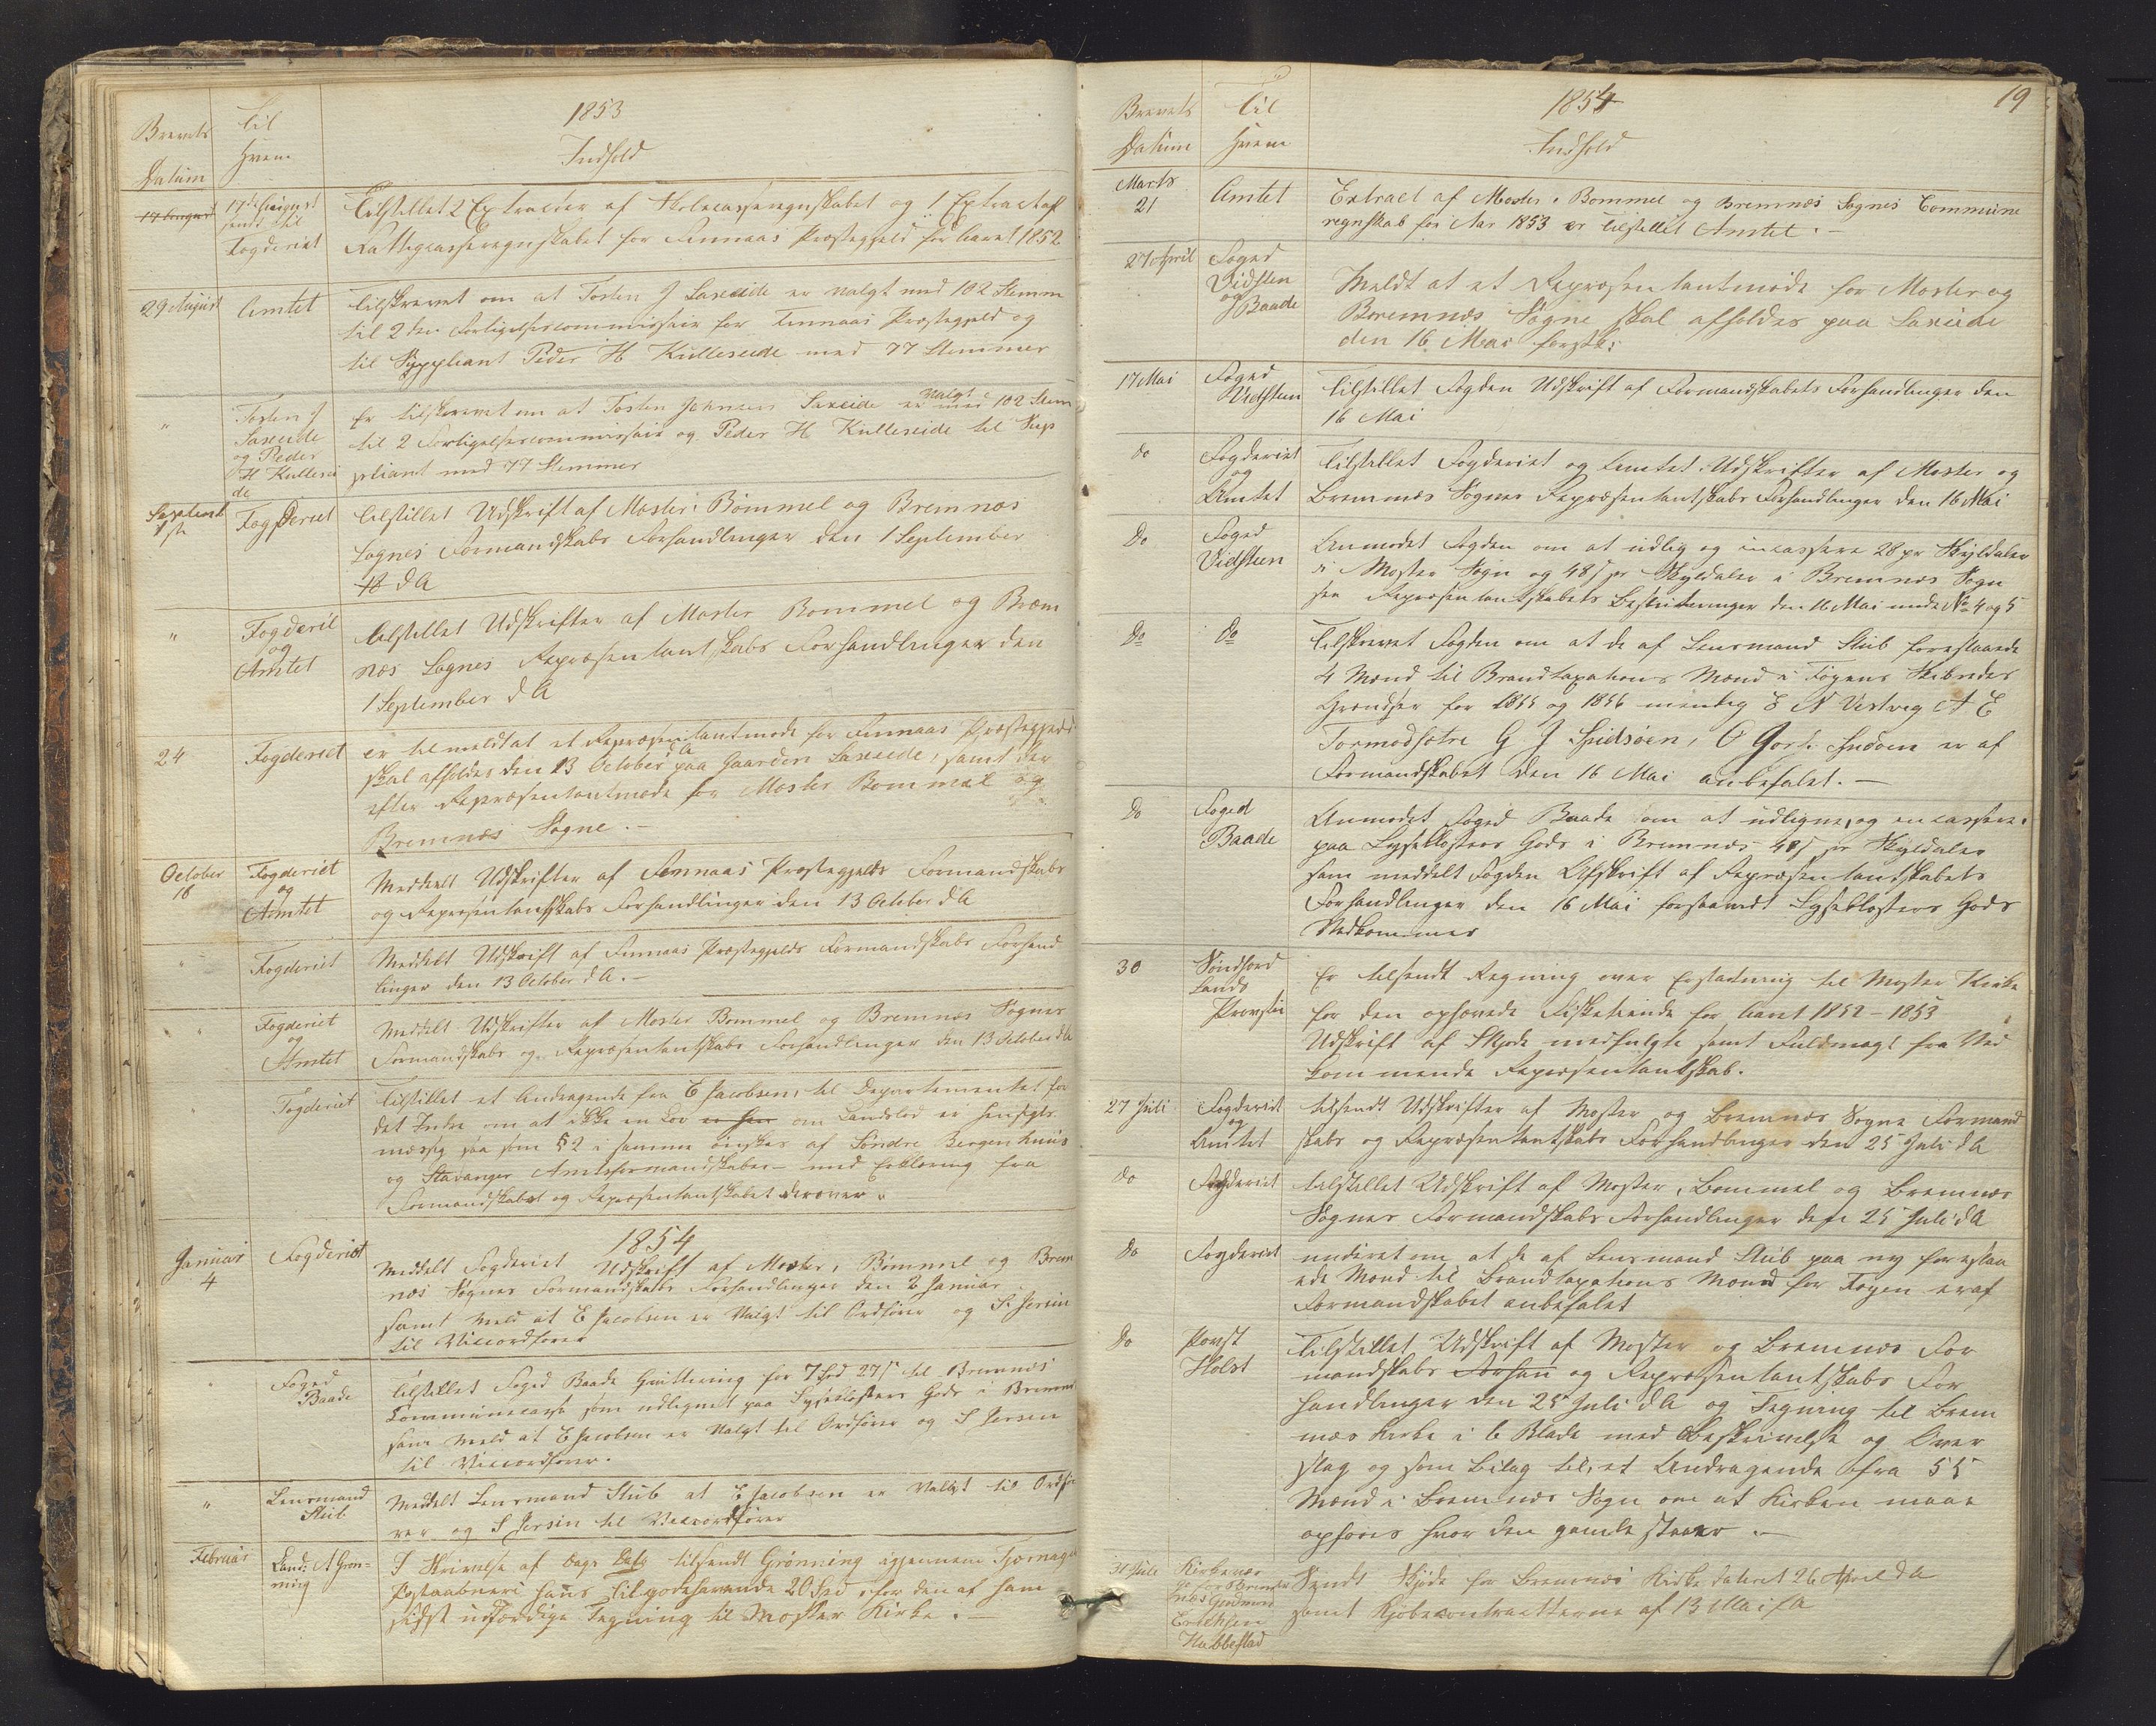 1853
Brevets
Datum
Til
Hvem
Indhold
17 August
17de August
sendt til
Fogderiet
Tilstillet 2 Extracter af Skolecasseregnskabet og 1 Extract af
Fattigcasseregnskabet for Finnaas Præstegjeld for Aaret 1852
29 August
Amtet
Tilskrevet om at Tosten J Saxeide er valgt med 102 Stemm
til 2den Forligelsescommissair for Finnaas Præstegjeld og
til Suppleant Peder H Kulleseide med 77 Stemmer
"
Tosten J
Saxeide
og Peder
H Kullesei
de
Er tilskrevet om at Tosten Johnsen Saxeide er valgt med 102 Stem
til 2 Forligelsescommissair og Peder H Kulleseide til Sup
pliant med 77 Stemmer
Septemb
Fogderiet
tilstillet Udskrift af Moster, Bømmel og Bremnæs
Sognes Formandskabs Forhandlinger den 1 September
18 d A
"
Fogderiet
og
Amtet
tilstillet Udskrifter af Moster Bømmel og Brem
næs Sognes Repræsentantskabs Forhandlinger den
1 September d A
24
Fogderiet
er bemeldt at et Repræsentantmøde for Finnaas Præstegjeld
skal afholdes den 13 October d A paa Gaarden Saxeide, samt der
efter Repræsentantmøde for Moster Bømmel og
Bremnæs Sogne.-
October
18
Fogderiet
og
Amtet
Meddeelt Udskrifter af Finnaas Præstegjelds Formandskabs
og Repræsentantskabs Forhandlinger den 13 October d A
"
Fogderiet
Meddelt Udskrift af Finnaas Præstegjelds Formandskabs Forhand
linger den 13 October d A.-
"
Fogderiet
og
Amtet
Meddelt Udskrifter af Moster Bømmel og Bremnæs Sognes
Formandskabs og Repræsentantskabs Forhandlinger den 13 October d A
"
Fogderiet
Tilstillet et Andragende fra E Jacobsen, til Departementet for
det Indre om at ikke en Lov om Landslod er hensigts
mæssig saa som §2 i samme ønskes af Søndre Bergenhuus
og Stavanger Amtsformandskaber - med Erklæring fra
Formandskabet og Repræsentantskabet derover.
1854
Januar
4
Fogderiet
Meddelt Fogderiet Udskrift af Moster, Bømmel og Brem
næs Sognes Formandskabs Forhandlinger den 2 Januar
samt Meld at E Jacobsen er Valgt til Ordfører og S Jersin
til Viceordfører
Foged
Baade
Tilstillet Foged Baade Qvittering for 7 Spd 27 s til Bremnæs
Communecasse som udlignet paa Lyseklosters Gods i Bremnæs
samt Meld at E Jacobsen er Valgt til Ordfører og S Jersin
til Viceordfører.
"
Lensmand
Stub
Meddelt Lensmand Stub at E Jacobsen er Valgt til Ordfø
rer og S Jersin til Viceordfører
Februar
Land: A Grøn-
ning
I Skrivelse af Dags Dato tilsendt Grønning igjennem Tjernagel
Postaabneri hans tilgodehavende 20 Spd for den af ham
sidst udfærdige Tegning til Moster Kirke.-
19
1854
Brevets
Datum
Til
Hvem
Indhold
Marts
21
Amtet
Extract af Moster, Bømmel og Bremnæs Sognes Commune
regnskab for Aar 1853 er tilstillet Amtet.-
27 April
Foged
Vidsteen
og
Baade
Meldt at et Repræsentantmøde for Moster og
Bremnæs Sogne skal afholdes paa Saxeide
den 16 Mai førstk:
17 Mai
Foged
Vidsteen
Tilstillet Fogden Udskrift af Formandskabets Forhandlinger den
16 Mai
do
Fogderiet
og
Amtet
Tilstillet Fogderiet og Amtet Udskrifter af Moster og
Bremnæs Sognes Repræsentantskabs Forhandlinger den 16 Mai
Do
Foged
Vidsteen
Anmodet Fogden om at udlig og incassere 28 pr Skyldaler
i Moster Sogn og 48 s pr Skyldaler i Bremnæs Sogn
Repræsentantskabets Beslutninger den 16 Mai under No 4 og 5
Do
Do
Tilskrevet Fogden om at de af Lensmand Stub foreslaaede
4 Mænd til Brandtaxations Mænd i Føyens Skibredes
Grændser for 1855 og 1856 nemlig E N Vestvig A E
Tormodsætre G J Spidsøen, O Indøen er af
Formandskabet den 16 Mai anbefalet.-
Do
Foged
Baade
Anmodet Foged Baade om at udligne, og encassere
paa Lyseklosters Gods i Bremnæs 48 s pr Skyldaler
samt meddelt Fogden Afskrift af Repræsentantskabets
Forhandlinger den 16 Mai forsaavidt Lyseklosters Gods
Vedkommer
30
Søndhord
lands
Provsti
Er tilsendt Regning over Erstatning til Moster Kirke
for den ophævede Fisketiende for Aaret 1852-1853
Udskrift af Skjøde medfulgte samt Fuldmagt fra Ved
kommende Repræsentantskab.
27 Juli
Fogderiet
og
Amtet
tilsendt Udskrifter af Moster og Bremnæs Sogne Formand
skabs og Repræsentantskabs Forhandlinger den 25 Juli d A
do
Fogderiet
tilstillet Udskrift af Moster, Bømmel og Bremnæs
Sognes Formandskabs Forhandlinger den 25 Juli d A
Do
Fogderiet
underet om at de af Lensmand Stub paa ny foreslaa
ede Mænd til Brandtaxations Mænd for Føyen er af
Formandskabet anbefalet
Do
Provst
Holst
Tilstillet Udskrift af Moster og Bremnæs For
mandskabs Forhan og Repræsentantskabs For
handlinger den 25 Juli d A og Tegning til Brem
næs Kirke i 6 Blade med Beskrivelse og Over
slag og som Bilag til, et Andragende fra 55
Mænd i Bremnæs Sogn om at Kirken maa
opføres hvor den gamle staaer.-
31 Juli
Kirkevær
ge for Brem
næs Gudmund
Erichsen
Habbestad
Sendt Skjøde for Bremnæs Kirke dateret 26 April d A
samt Kjøbecontracterne af 13 Mai f A